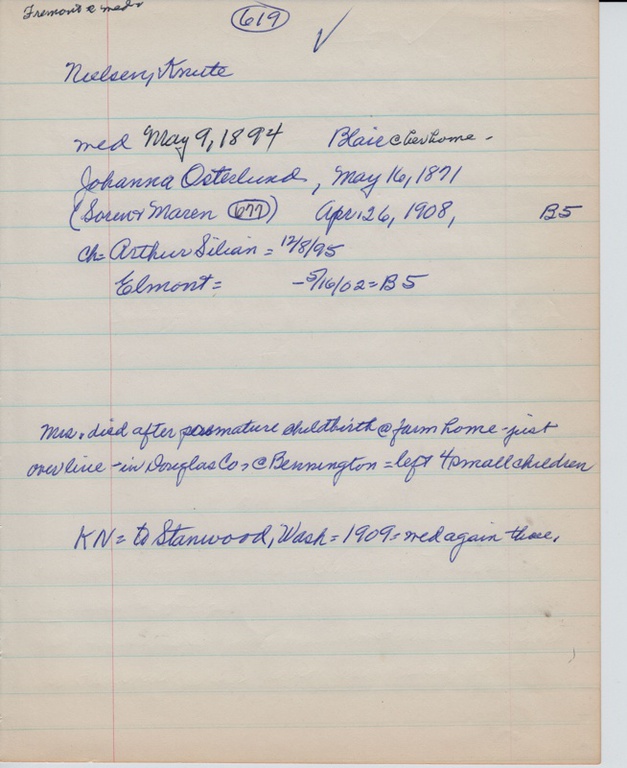 Fremont &
619
Nielsen, Knute
med May 9, 1894 Blair @ her home -
Johanna Osterlund, May 16, 1871
(Soren & Maren 677) Apr. 26, 1908, B5
ch= Arthur Silian = 12/8/95
Elmont = -5/16/02=B5
Mrs. died after premature childbirth @ farm home - just
over line - in Douglas Co, @ Bennington = left 4 small children
KN = to Stanwood, Wash = 1909 = med again there.